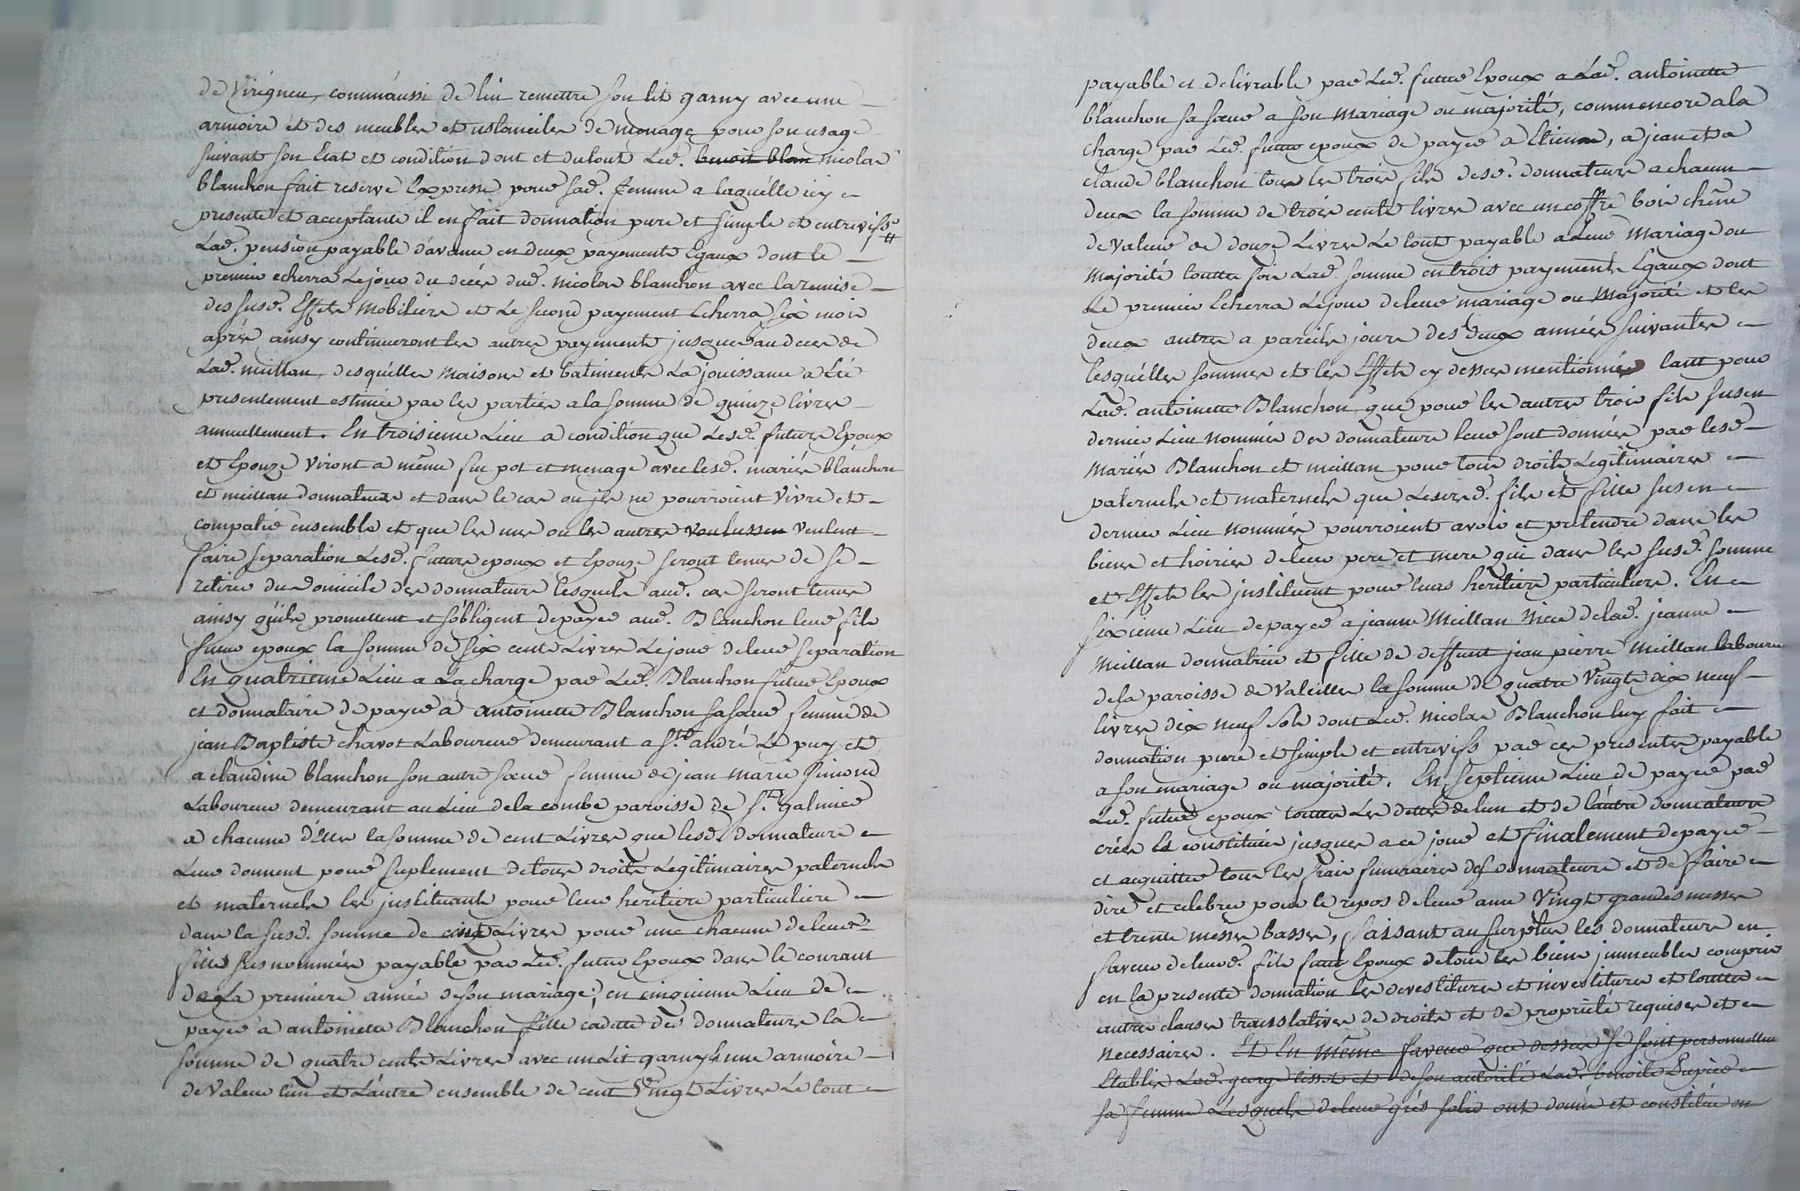 de Virigneu, comm'aussi de luy remettre son lit garny avec une
armoire et des meubles et ustanciles de menage pour son usage
suivant son Etat et condition dont et du tout Led. benoit blan nicolas
blanchon fait reserve Expresse pour sad. femme a laquelle icy
presente et acceptante il en fait donnation pure et simple et entrevifs
Lad. pension payable d'avance en deux payements Egaux dont le
premier echerra Le jour du décès dud. nicolas blanchon avec la remise
des susd. Effets mobiliers et Le second payement Echerra six mois
après ainsy continueront les autres payements jusques au deces de
Lad. meillan, desquelles maisons et batiments La jouissance a Eté
presentement estimée par les parties a la somme de quinze livres
annuellement. En troisieme Lieu a condition que Lesd. futurs Epoux
et Epouze vivront a même feu pot et menage avec lesd. mariés blanchon
et meillan donnateurs et dans le cas ou ils ne pourroient vivre et
compatir ensemble et que les uns ou les autres voulussen veulent
faire separation Lesd. futurs epoux et Epouze seront tenus de se
retirer du domicile des donnateurs lesquels aud. cas seront tenus
ainsy qu'ils promettent et s'obligent de payer aud. Blanchon leur fils
futur epoux la somme de six cents Livres Le jour de leur separation
En quatrieme Lieu a La charge par Led. Blanchon futur Epoux
et donnataire de payer à antoinette Blanchon sa sœur femme de
jean Baptiste chavot Laboureur demeurant a St. andré Le puy et
a claudine blanchon son autre sœur femme de jean marie simond
Laboureur demeurant au Lieu de la combe paroisse de St. galmier
a chacune d'elles la somme de cent Livres que lesd. donnateurs
Leur donnent pour suplement de tous droits Legitimaires paternels
et maternels les justituants pour leur heritiere particuliere
dans la susd. somme de cent Livres pour une chacune de leurs
filles sus nommées payable par Led. futur Epoux dans le courant
de La premiere année de son mariage; en cinquieme Lieu de
payer a antoinette Blanchon fille cadette des donnateurs la
somme de quatre cents Livres avec un Lit garny & une armoire
de Valeur l'un et L'autre ensemble de cent Vingt Livres Le tout
payable et delivrable par Led. futur Epoux a Lad. antoinette
blanchon sa sœur a son mariage ou majorité, comm'encore a la
charge par Led. futur epoux de payer a Etienne, a jean et a
claude blanchon tous les trois fils desd. donnateurs a chacun
deux la somme de trois cents livres avec un coffre bois chêne
de valeur de douze Livres Le tout payable a Leur mariage ou
majorité toutte fois Lad. somme en trois payements Egaux dont
Le premier Echerra Le jour de leur mariage ou majorité et les
deux autres a pareils jours des deux années suivantes
lesquelles sommes et les Effets cy dessus mentionnés tant pour
Lad. antoinette Blanchon que pour les autres trois fils sus en
dernier Lieu nommés des donnateurs leur sont donnés par lesd.
mariés Blanchon et meillan pour tous droits Legitimaires
paternels et maternels que Lesusd. fils et fille sus en
dernier Lieu nommés pourroient avoir et pretendre dans les
biens et hoiries de leur pere et mere qui dans les susd. sommes
et Effets les justituent pour leurs heritiers particuliers. En
sixieme Lieu de payer a jeanne Meillan Niece de lad. jeanne
Meillan donnatrice et fille de deffunt jean pierre Meillan laboureur
de la paroisse de Valeille la somme de quatre Vingt dix neuf
livres dix neuf sols dont Led. nicolas Blanchon luy fait
donnation pure et simple et entrevifs par ces presentes payable
a son mariage ou majorité. En septieme Lieu de payer par
Led. futur epoux touttes Les dettes de l'un et de l'autre donnateurs
créés et constitués jusques a ce jour et finalement de payer
et acquitter tous les frais funeraires des donnateurs et de faire
dire et celebrer pour le repos de leur ame Vingt grandes messes
et trente messes basses, faisant au surplus les donnateurs en
faveur de leurd. fils futur Epoux de tous les biens jmmeubles compris
en la presente donnation les devestitures et jnvestitures et touttes
autres clauses translatives de droits et de propriété requises et
necessaires. Et En même faveur que dessus se sont personnellem
Etablis Led. george tissot et de son autorité Lad. benoite
sa femme Lesquels de leur grés solid ont donné et constitué en